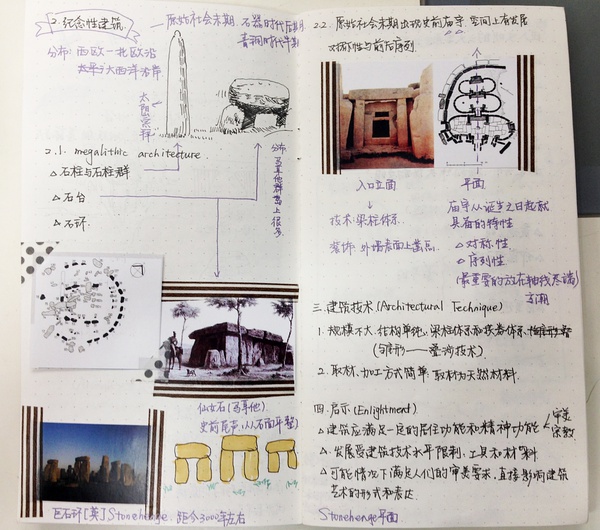 2.纪念性建筑
原始社会末期. 石器时代后期
青铜时代早期
分布: 西欧—北欧沿
太平广大西洋沿岸
太阳崇拜
分布
马耳他群岛上很多.
2.1. megalithic architecture
△石柱与石柱群
△石台
△石环.
仙女石(马耳他).
史前
石面平整)
巨石环[英]Stonehenge. 距今3000年左右
2.2. 原始社会末期出现史前庙宇. 空间上有发展
对称性与前后序列.
入口立面
平面
技术: 梁柱体系.
装饰: 外墙表面上凿点.
庙宇从诞生之日起就
具备的特性
△对称性.
△序列性
(最重要的放在轴线尽端)
高潮
三.建筑技术(Architectural Technique)
1. 规模不大. 结构单纯. 梁柱体系和拱券体系.
(弓隆形——叠涩技术)
2. 取材、加工方式简单. 取材为天然材料.
四. 启示(Enlightment).
△建筑应满足一定的居住功能和精神功能
审美
宗教.
△. 发展受建筑技术水平限制. 工具和材料
△可能情况下满足人们的审美要求. 直接影响建筑
艺术的形式和表达.
Stonehenge平面